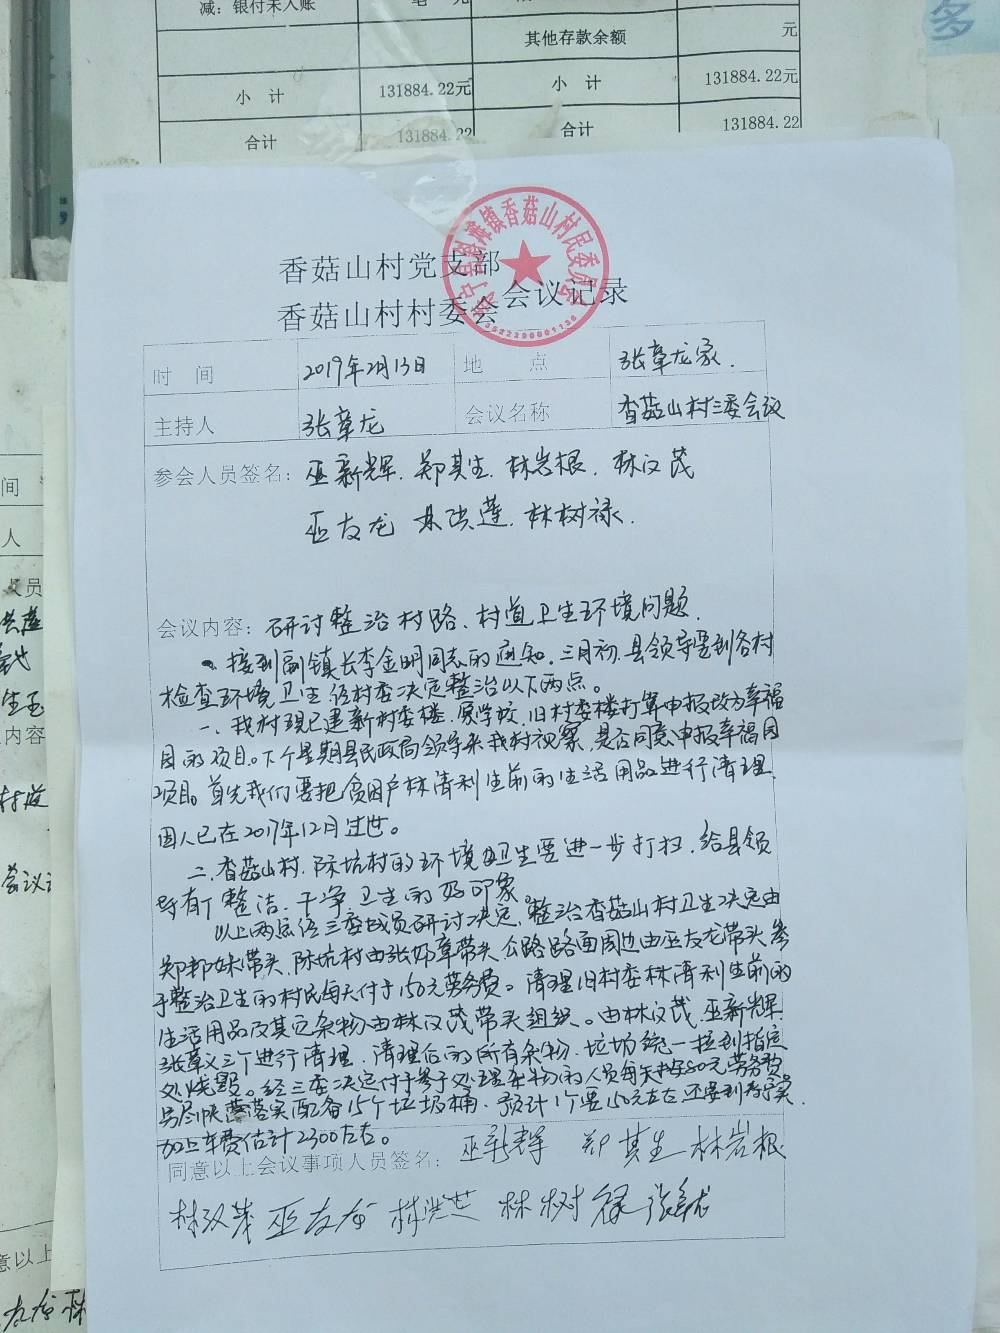 减：银付未入账
元
其他存款余额
元
小 计
131884.22元
小 计
131884.22元
合计
131884.22
合计
131884.22
多
香菇山村党支部
香菇山村村委会
会议记录
镇香菇山村民委员会
时 间
2019年2月13日
地 点
张章龙家.
主持人
张章龙
会议名称
香菇山村三委会议
参会人员签名：巫新辉.郑其生.林岩根.林汉茂
巫友龙 林洪莲.林树禄.
会议内容：研讨整治村路、村道卫生环境问题.
接到副镇长李金明同志的通知.三月初.县领导要到各村
检查环境卫生.经村委决定整治以下两点。
一、我村现已建新村委楼.原学校.旧村委楼打算申报改为幸福
园的项目。下个星期县民政局领导来我村视察.是否同意申报幸福园
项目。首先我们要把贫困户林清利生前的生活用品进行清理.
因人已在2017年12月过世。
二.香菇山村.陈坑村的环境卫生要进一步打扫.给县领
导有个整洁.干净.卫生的好印象。
以上两点经三委成员研讨决定.整治香菇山村卫生决定由
郑邦妹带头.陈坑村由张师章带头.公路路面周边由巫友龙带头.参
于整治卫生的村民每天付于150元劳务费。清理旧村委林清利生前的
生活用品及其它杂物由林汉茂带头组织。由林汉茂.巫新辉.
张章义三个进行清理.清理后的所有杂物.垃圾统一拉到指定
处烧毁。经三委决定付于参于处理杂物的人员每天 元劳务费.
另尽快落实配备15个垃圾桶.预计1个要150元左右.还要到寿宁买.
加上车费估计2300左右。
同意以上会议事项人员签名：巫新辉 郑其生 林岩根
林汉茂 巫友龙 林洪莲 林树禄 张章龙
间
人
人员
内容
会议
意以上